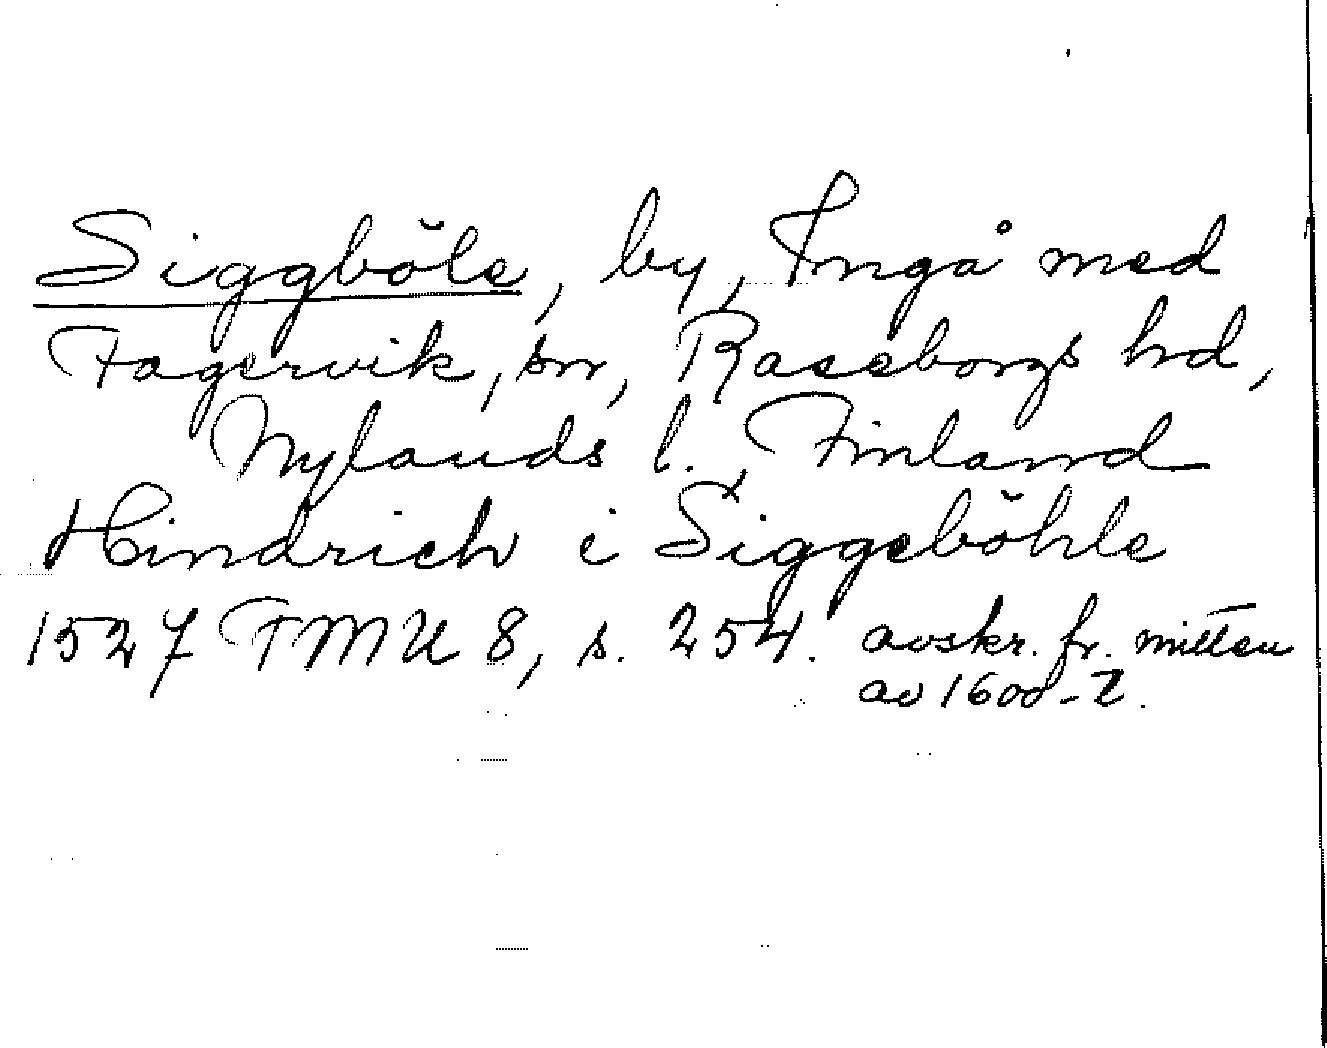 Siggböle, by, Ingå med
Fagervik, sn, Raseborgs hd,
Nylands l., Finland
Hindrich i Siggeböhle
1527 FMU 8, s. 254. avskr. fr. mitten
av 1600-t.